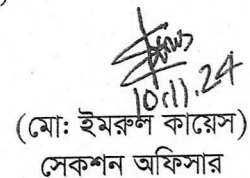 10.11.24
(মো: ইমরুল কায়েস)
সেকশন অফিসার